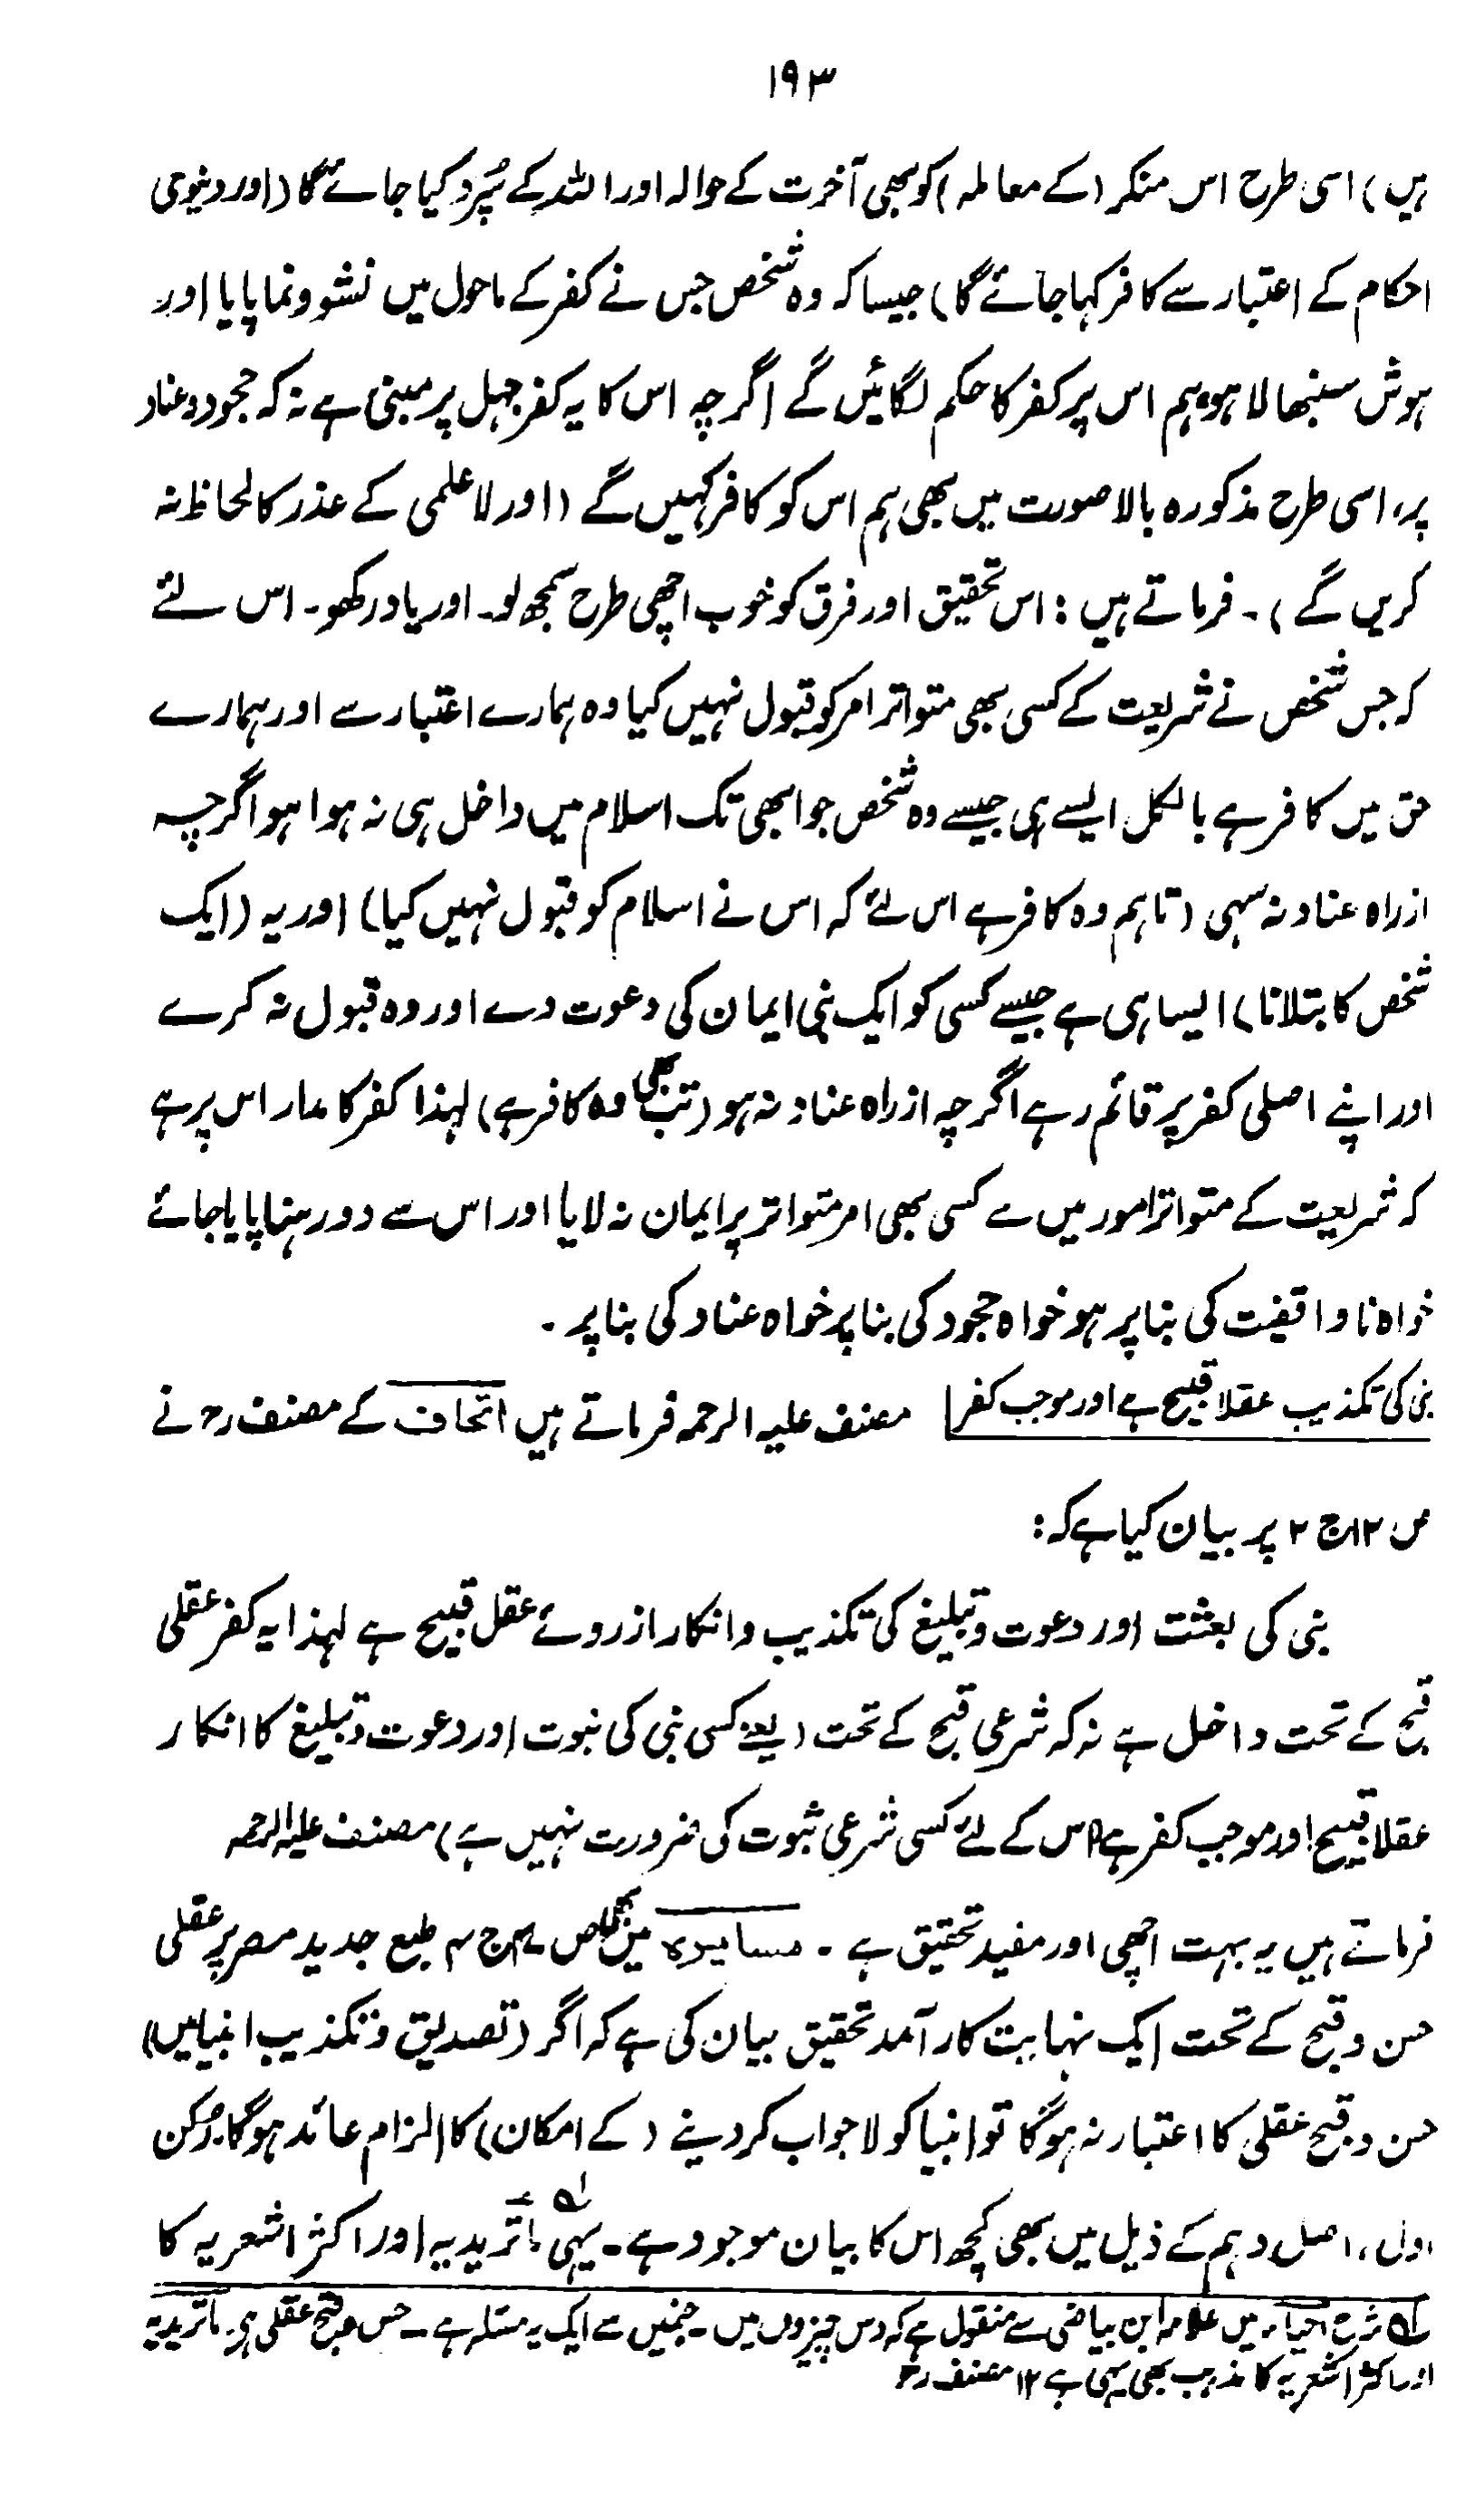 ۱۹۳
ہیں) اسی طرح اس منکر (کے معاملہ) کو بھی آخرت کے حوالہ اور اللہ کے سُپرد کیا جائے گا (اور دنیوی
احکام کے اعتبار سے کافر کہا جائے گا) جیسا کہ وہ شخص جس نے کفر کے ماحول میں نشو ونما پایا اور
ہوش سنبھالا ہو ہم اس پر کفر کا حکم لگائیں گے اگرچہ اس کا یہ کفر جہل پر مبنی ہے نہ کہ جحود وعناد
پر، اسی طرح مذکورہ بالا صورت میں بھی ہم اس کو کافر کہیں گے (اور لاعلمی کے عذر کا لحاظ نہ
کریں گے)۔ فرماتے ہیں: اس تحقیق اور فرق کو خوب اچھی طرح سمجھ لو۔ اور یاد رکھو۔ اس لئے
کہ جس شخص نے شریعت کے کسی بھی متواتر امر کو قبول نہیں کیا وہ ہمارے اعتبار سے اور ہمارے
حق میں کافر ہے بالکل ایسے ہی جیسے وہ شخص جو ابھی تک اسلام میں داخل ہی نہ ہوا ہو اگرچہ
ازراہ عناد نہ سہی (تاہم وہ کافر ہے اس لئے کہ اس نے اسلام کو قبول نہیں کیا) اور یہ (ایک
شخص کا بتلانا) ایسا ہی ہے جیسے کسی کو ایک نبی ایمان کی دعوت دے اور وہ قبول نہ کرے
اور اپنے اصلی کفر پر قائم رہے اگرچہ ازراہ عناد نہ ہو (تب بھی وہ کافر ہے) لہذا کفر کا مدار اس پر ہے
کہ شریعت کے متواتر امور میں سے کسی بھی امر متواتر پر ایمان نہ لایا اور اس سے دور رہنا پایا جائے
خواہ ناواقفیت کی بنا پر ہو خواہ جحود کی بنا پر خواہ عناد کی بنا پر۔
نبی کی تکذیب عقلا قبیح ہے اور موجب کفر مصنف علیہ الرحمہ فرماتے ہیں اتحاف کے مصنفؒ نے
ص ۱۲ ج ۲ پر بیان کیا ہے کہ:
نبی کی بعثت اور دعوت وتبلیغ کی تکذیب وانکار ازروئے عقل قبیح ہے لہذا یہ کفر عقلی
قبح کے تحت داخل ہے نہ کہ شرعی قبح کے تحت (یعنے کسی نبی کی نبوت اور دعوت وتبلیغ کا انکار
عقلا قبیح اور موجب کفر ہے اس کے لئے کسی شرعی ثبوت کی ضرورت نہیں ہے) مصنف علیہ الرحمہ
فرماتے ہیں یہ بہت اچھی اور مفید تحقیق ہے۔ مسایرہ میں بھی ص ج طبع جدید مصر پر عقلی
حسن وقبح کے تحت ایک نہایت کارآمد تحقیق بیان کی ہے کہ اگر (تصدیق وتکذیب انبیا میں)
حسن وقبح عقلی کا اعتبار نہ ہوگا تو انبیا کو لاجواب کر دینے (کے امکان) کا الزام عائد ہوگا۔ رکن
اول، اصل دہم کے ذیل میں بھی کچھ اس کا بیان موجود ہے۔ یہی ماتریدیہ اور اکثر اشعریہ کا
لہ شرح احیاء میں علامہ ابن بیاضی سے منقول ہے کہ دس چیزوں میں۔ جنمیں سے ایک یہ مسئلہ ہے۔ حسن وقبح عقلی ہی ماتریدیہ
اور اکثر اشعریہ کا مذہب بھی یہی ہے ۱۲ مصنفؒ